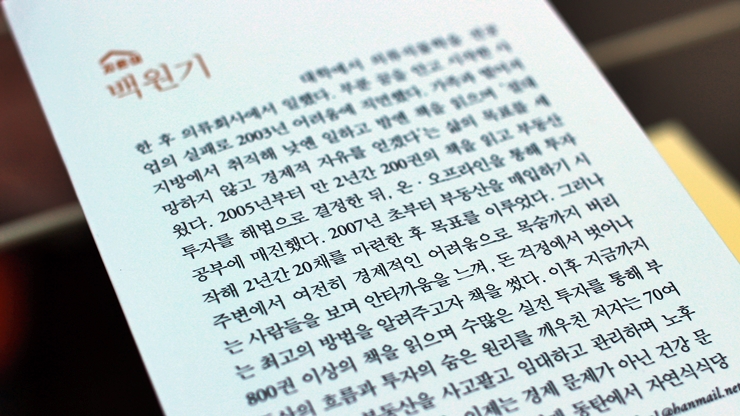 자환경
백원기
대학에서 의류직물학을 전공
한 후 의류회사에서 일했다. 부푼 꿈을 안고 시작한 사
업의 실패로 2003년 어려움에 직면했다. 가족과 떨어져
지방에서 취직해 낮엔 일하고 밤엔 책을 읽으며 '절대
망하지 않고 경제적 자유를 얻겠다'는 삶의 목표를 세
웠다. 2005년부터 만 2년간 200권의 책을 읽고 부동산
투자를 해법으로 결정한 뒤, 온·오프라인을 통해 투자
공부에 매진했다. 2007년 초부터 부동산을 매입하기 시
작해 2년간 20채를 마련한 후 목표를 이루었다. 그러나
주변에서 여전히 경제적인 어려움으로 목숨까지 버리
는 사람들을 보며 안타까움을 느껴, 돈 걱정에서 벗어나
는 최고의 방법을 알려주고자 책을 썼다. 이후 지금까지
800권 이상의 책을 읽으며 수많은 실전 투자를 통해 부
동산의 흐름과 투자의 숨은 원리를 깨우친 저자는 70여
부동산을 사고팔고 임대하고 관리하며 노후
이제는 경제 문제가 아닌 건강 문
동탄에서 자연식식당
hanmail.net